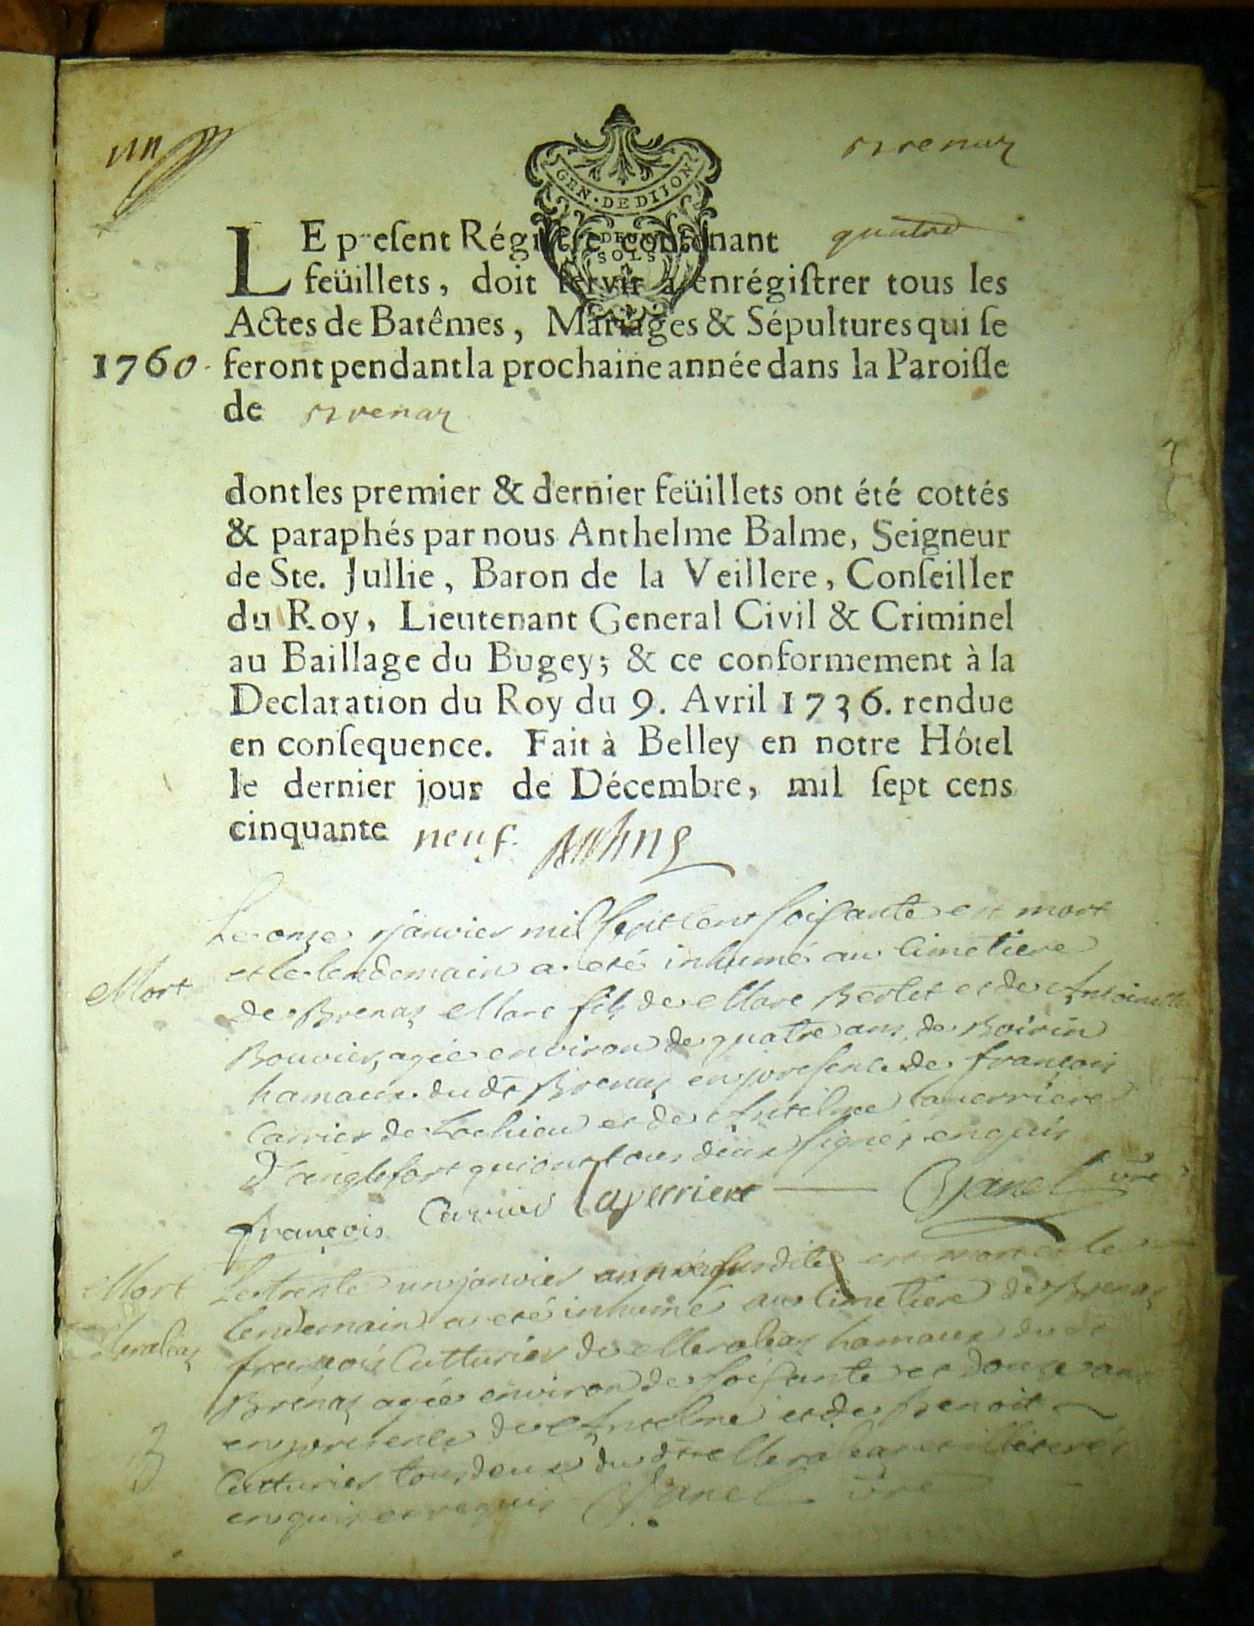 un
Brenaz
GEN · DE DIJON
DEUX
SOLS
LE present Régistre contenant quatre
feüillets, doit servir à enrégistrer tous les
Actes de Batêmes, Mariages & Sépultures qui se
1760. feront pendant la prochaine année dans la Paroisse
de Brenaz
dont les premier & dernier feüillets ont été cottés
& paraphés par nous Anthelme Balme, Seigneur
de Ste. Jullie, Baron de la Veillere, Conseiller
du Roy, Lieutenant General Civil & Criminel
au Baillage du Bugey; & ce conformement à la
Declaration du Roy du 9. Avril 1736. rendue
en consequence. Fait à Belley en notre Hôtel
le dernier jour de Décembre, mil sept cens
cinquante neuf.
Le onze janvier mil sept cent soisante est mort
Mort et le lendemain a été inhumé au cimetiere
de Brenaz Marc fils de Marc Berlet et de Antoinette
Bouvier, agée environ de quatre ans, de Boirin
hamaux du dt Brenaz en presence de françois
Carrier de Lochieu et de Anthelme Laverriere
D'anglefort qui ont tous deux signés enquis
françois Carrier Laverriere Janel vre
Mort Le trente un janvier année susdite est mort et le
lendemain a été inhumé au cimetiere de Brenaz
Meraleaz françois Cutturier de Meraleaz hamaux du dt
Brénaz agée environ de soisante et douze ans
en presence de Anthelme et de Benoit
Cutturier tous deux du dt Meraleaz illiterés
enquis et requis Janel vre